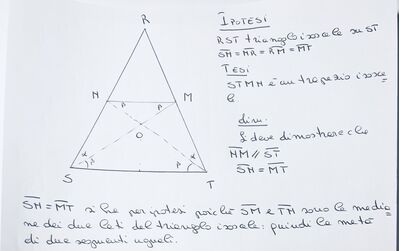 R
IPOTESI
RST triangolo isoscele su S̅T̅
S̅N̅ = N̅R̅ = R̅M̅ = M̅T̅
TESI
STMN è un trapezio isosce
le.
N
M
β
β
O
dim.
Si deve dimostrare che
N̅M̅ // S̅T̅
S̅N̅ = M̅T̅
α
α
β
β
S
T
S̅N̅ = M̅T̅ si ha per ipotesi poiché S̅M̅ e T̅N̅ sono le media
ne dei due lati del triangolo isoscele: quindi la metà
di due segmenti uguali.